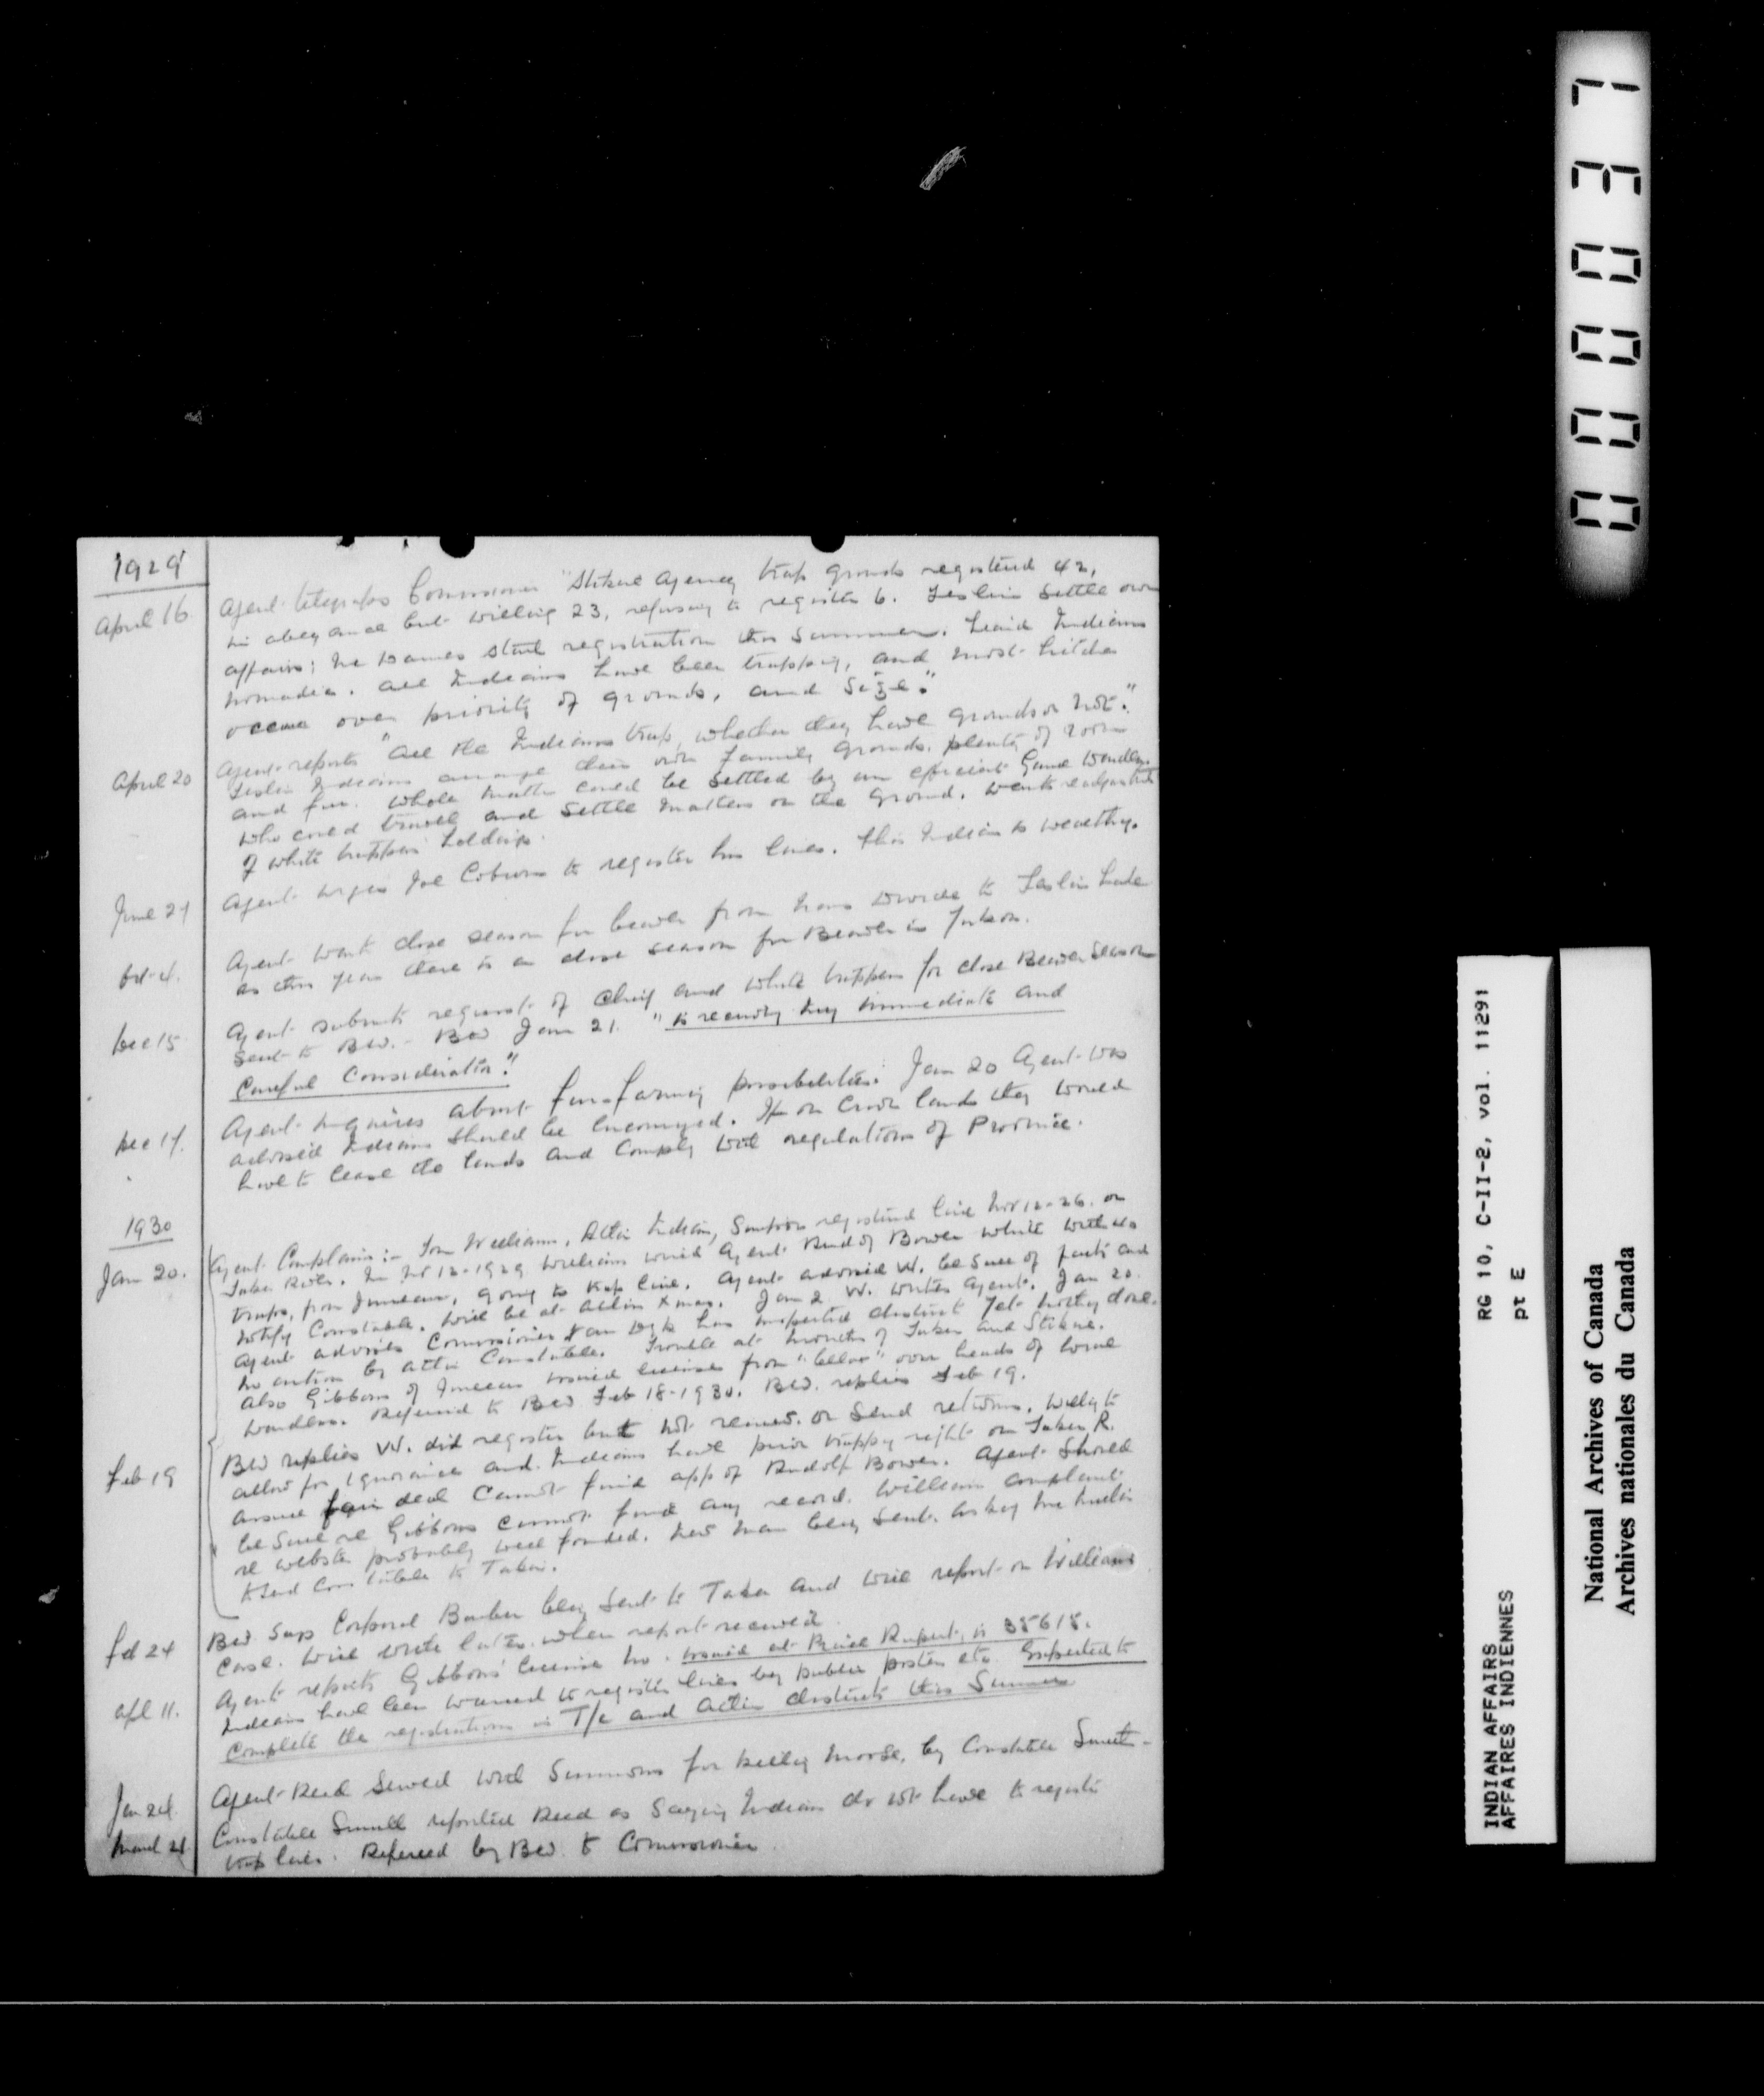 1929
April 16 Agent telegraphs Commissioner "Stikine Agency trap grounds registered 42,
in abeyance but willing 23, refusing to register 6. Teslin settle own
affairs; start registration this summer. Liard Indians
nomadic. All Indians have been trapping, and most hitches
occur over priority of grounds, and size."
April 20 Agent reports "All the Indians trap, whether they have grounds or not."
Teslin Indians arrange their own family grounds. plenty of room
and fur. Whole matter could be settled by an efficient Game Warden
who could travel and settle matters on the ground. Wants readjustment
of white trappers holdings.
June 21 Agent urges Joe Coburn to register his lines. This Indian is wealthy.
Oct 4. Agent wants close season for beaver from divide to Teslin Lake
as this year there is a close season for Beaver in Yukon.
Dec 15 Agent submits request of Chief and white trappers for close Beaver season
Sent to BW. - BW Jan 21. "is receiving immediate and
careful consideration."
Dec 17. Agent inquires about fur-farming possibilities. Jan 20 Agent was
advised Indians should be encouraged. If on Crown lands they would
have to lease the lands and comply with regulations of Province.
1930
Jan 20. Agent Complains:- Tom Williams, Atlin Indian, registered line Nov 12-26. on
Taku River. In Nov 12-1929 Williams wired Agent Rudolf Bower white with 40
traps, from Juneau, going to trap line. Agent advised W. be sure of facts and
notify Constable. Will be at Atlin Xmas. Jan 2 W. writes Agent. Jan 20.
Agent advises Commissioner Van Dyk has inspected district yet nothing done.
No action by Atlin Constable. Trouble at mouths of Taku and Stikine.
Also Gibbons of Juneau issued licenses from "below" over heads of local
wardens. Referred to BW Feb 18-1930. BW. replies Feb 19.
Feb 19 BW replies W. did register but not renew. or send returns. Willing to
allow for ignorance and Indians have prior trapping right on Taku R.
assure fair deal Cannot find app of Rudolf Bower. Agent should
be sure re Gibbons cannot find any record. Williams complaint
re Webster probably well founded. New man being sent.
to send Constable to Taku.
Feb 24 BW says Corporal Barber being sent to Taku and will report on Williams
case. Will write later when report received.
Apl 11. Agent reports Gibbons' license no. issued at Prince Rupert, is 35615.
Indians have been warned to register lines by public posters etc. Expected to
complete the registrations in T/c and Atlin districts this Summer
Jan 24 Agent Reed served with Summons for killing moose, by Constable Smith -
March 21 Constable Smith reported Reed as saying Indians do not have to register
trap lines. Referred by BW. to Commissioner
000037
INDIAN AFFAIRS RG 10, C-II-2, vol. 11291
AFFAIRES INDIENNES pt E
National Archives of Canada
Archives nationales du Canada